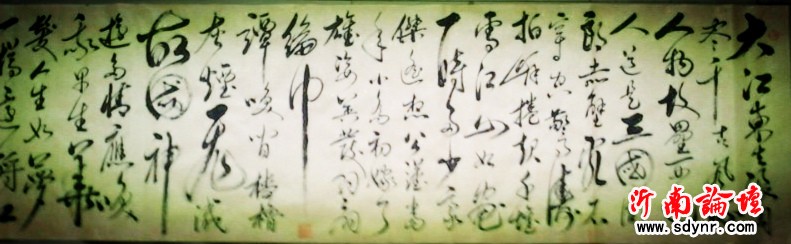 大江東去浪淘
尽千古風流
人物故壘西邊
人道是三國周
郎赤壁亂石
穿空驚濤
拍岸捲起千堆
雪江山如畫
一時多少豪
傑遙想公瑾當
年小喬初嫁了
雄姿英發羽扇
綸巾
譚笑間檣櫓
灰煙飛滅
故國神
遊多情應笑
我早生華
髮人生如夢
一尊還酹江
沂南論壇
www.sdynr.com